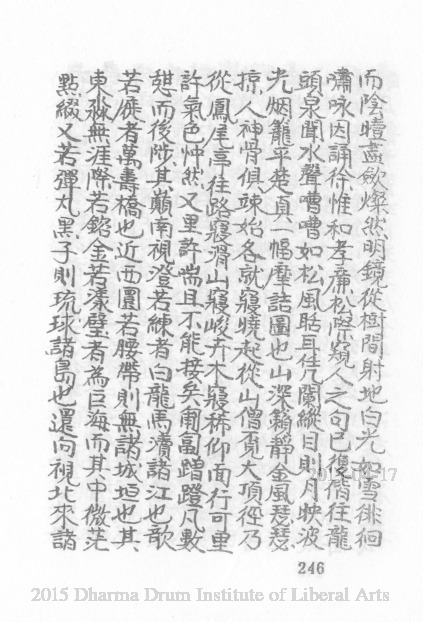 而陰曀盡歛燦然明鏡從樹間射地白光如雪徘徊
嘯咏因誦徐惟和孝廉松際窺人之句已復偕往龍
頭泉聞水聲嘈嘈如松風聒耳凭闌縱目則月映波
光烟籠平楚真一幅摩詰圖也山深籟靜金風瑟瑟
掠人神骨俱竦始各就寢曉起從山僧覓大頂徑乃
從鳳尾亭往路寢滑山寢峻卉木寢稀仰面行可里
許氣色忡然又里許喘且不能接矣匍匐蹭蹬凡數
憇而後陟其巔南視澄若練者白龍馬瀆諸江也欹
若屐者萬壽橋也近西圜若腰帶則無諸城垣也其
東淼無涯際若鎔金若漾璧者為巨海而其中微茫
點綴又若彈丸黑子則琉球諸島也還向視北來諸
246
2015 Dharma Drum Institute of Liberal Arts